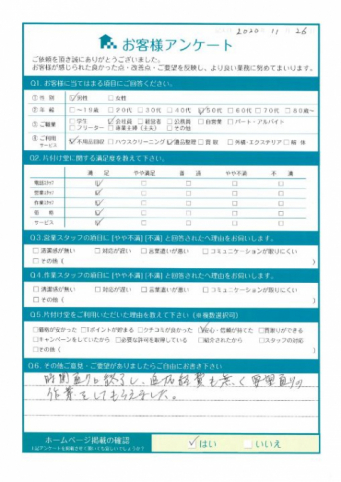 2020 11 26
お客様アンケート
ご依頼を頂き誠にありがとうございました。
お客様が感じられた良かった点・改善点・ご要望を反映し、より良い業務に努めてまいります。
Q1. お客様に当てはまる項目にご回答ください。
①性 別 ☑男性 □女性
②年 齢 □~19歳 □20代 □30代 □40代 ☑50代 □60代 □70代 □80歳~
③ご職業 □学生 ☑会社員 □経営者 □公務員 □自営業 □パート・アルバイト
□フリーター □専業主婦(主夫) □その他
④ご利用サービス ☑不用品回収 □ハウスクリーニング ☑遺品整理 □買取 □外構・エクステリア □解体
Q2. 片付け堂に関する満足度を教えて下さい。
満 足 やや満足 普 通 やや不満 不 満
電話スタッフ ☑ □ □ □ □
営業スタッフ ☑ □ □ □ □
作業スタッフ ☑ □ □ □ □
価 格 ☑ □ □ □ □
サービス ☑ □ □ □ □
Q3.営業スタッフの項目に[やや不満][不満]と回答された方へ理由をお伺いします。
□清潔感が無い □対応が遅い □言葉遣いが悪い □コミュニケーションが取りにくい
□その他( )
Q4.作業スタッフの項目に[やや不満][不満]と回答された方へ理由をお伺いします。
□清潔感が無い □対応が遅い □言葉遣いが悪い □コミュニケーションが取りにくい
□その他( )
Q5.片付け堂をご利用いただいた理由を教えて下さい(※複数選択可)
□価格が安かった □Tポイントが貯まる □クチコミが良かった ☑安心・信頼が持てた □買取りができる
□キャンペーンをしていたから □必要な許可を取得している □紹介されたから □スタッフの対応
□その他( )
Q6.その他ご意見・ご要望がありましたらご自由にお書き下さい
時間通り終了し、追加経費も無く希望通りの
作業をしてもらえました。
ホームページ掲載の確認 ☑はい □いいえ